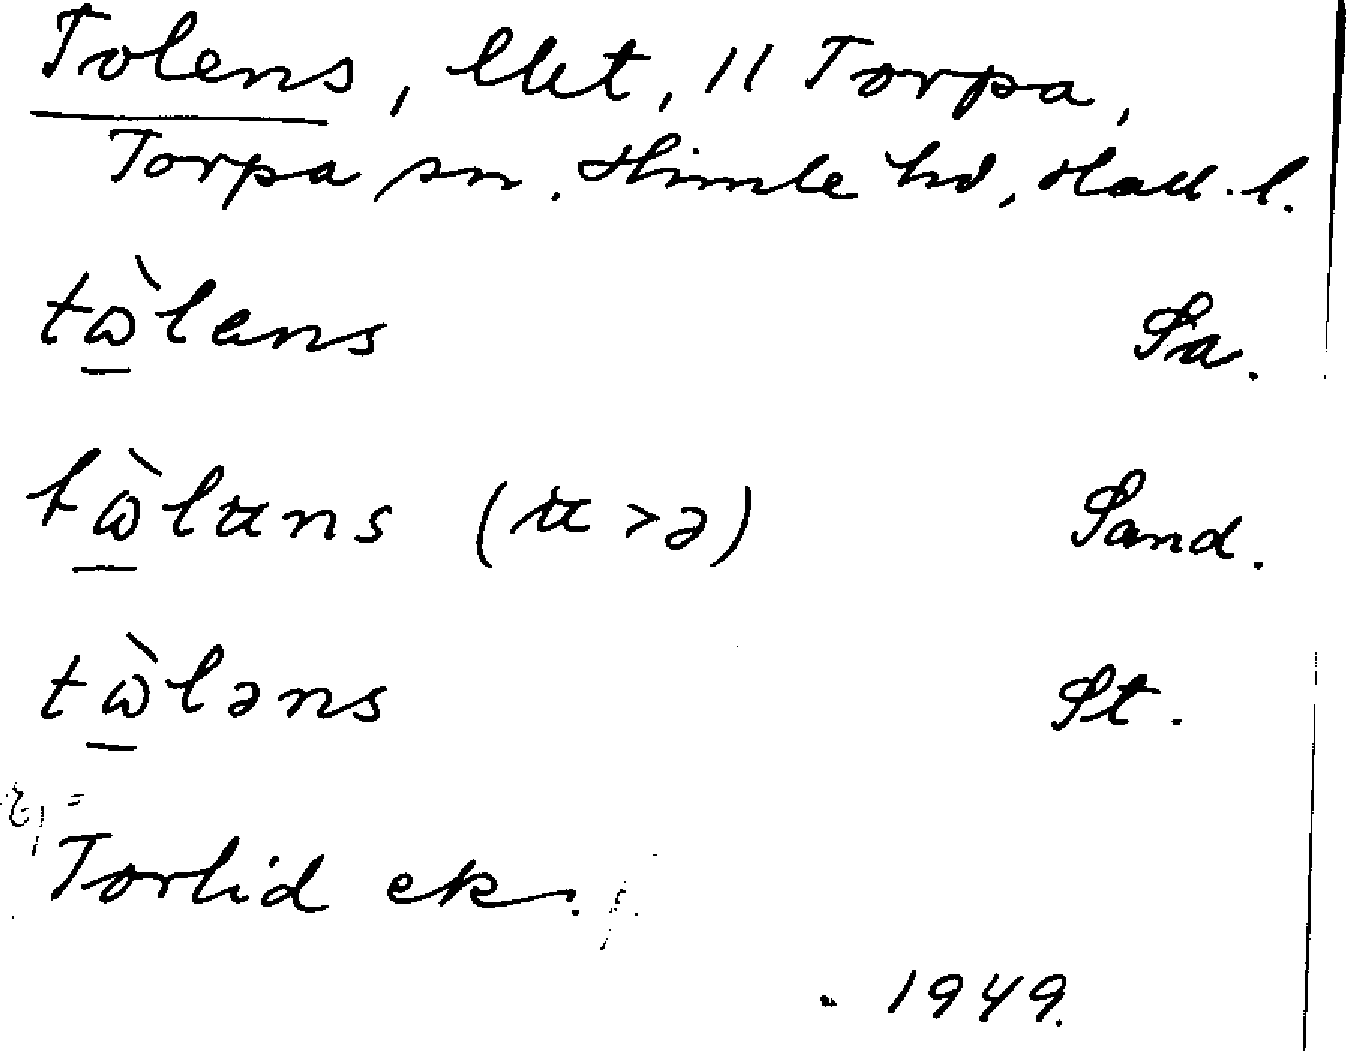 Tolens, lht, 11 Torpa,
Torpa sn. Himle hd, Hall. l.
tὼ̲lens Sa.
tὼ̲lens (u>ə) Sand.
tὼ̲ləns St.
Torlid ek.
1949.